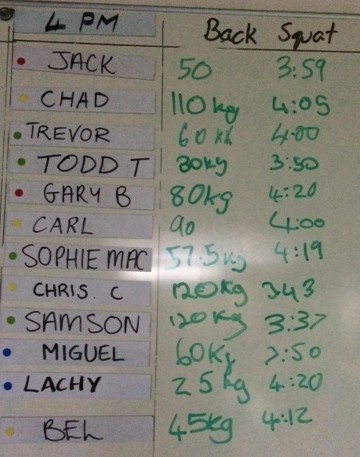 4 PM Back Squat
JACK 50 3:59
CHAD 110kg 4:05
TREVOR 60kg 4:00
TODD T 30kg 3:50
GARY B 80kg 4:20
CARL 90 4:00
SOPHIE MAC 57.5kg 4:19
CHRIS. C 120kg 343
SAMSON 120kg 3:37
MIGUEL 60Kg :50
LACHY 25kg 4:20
BEL 45kg 4:12